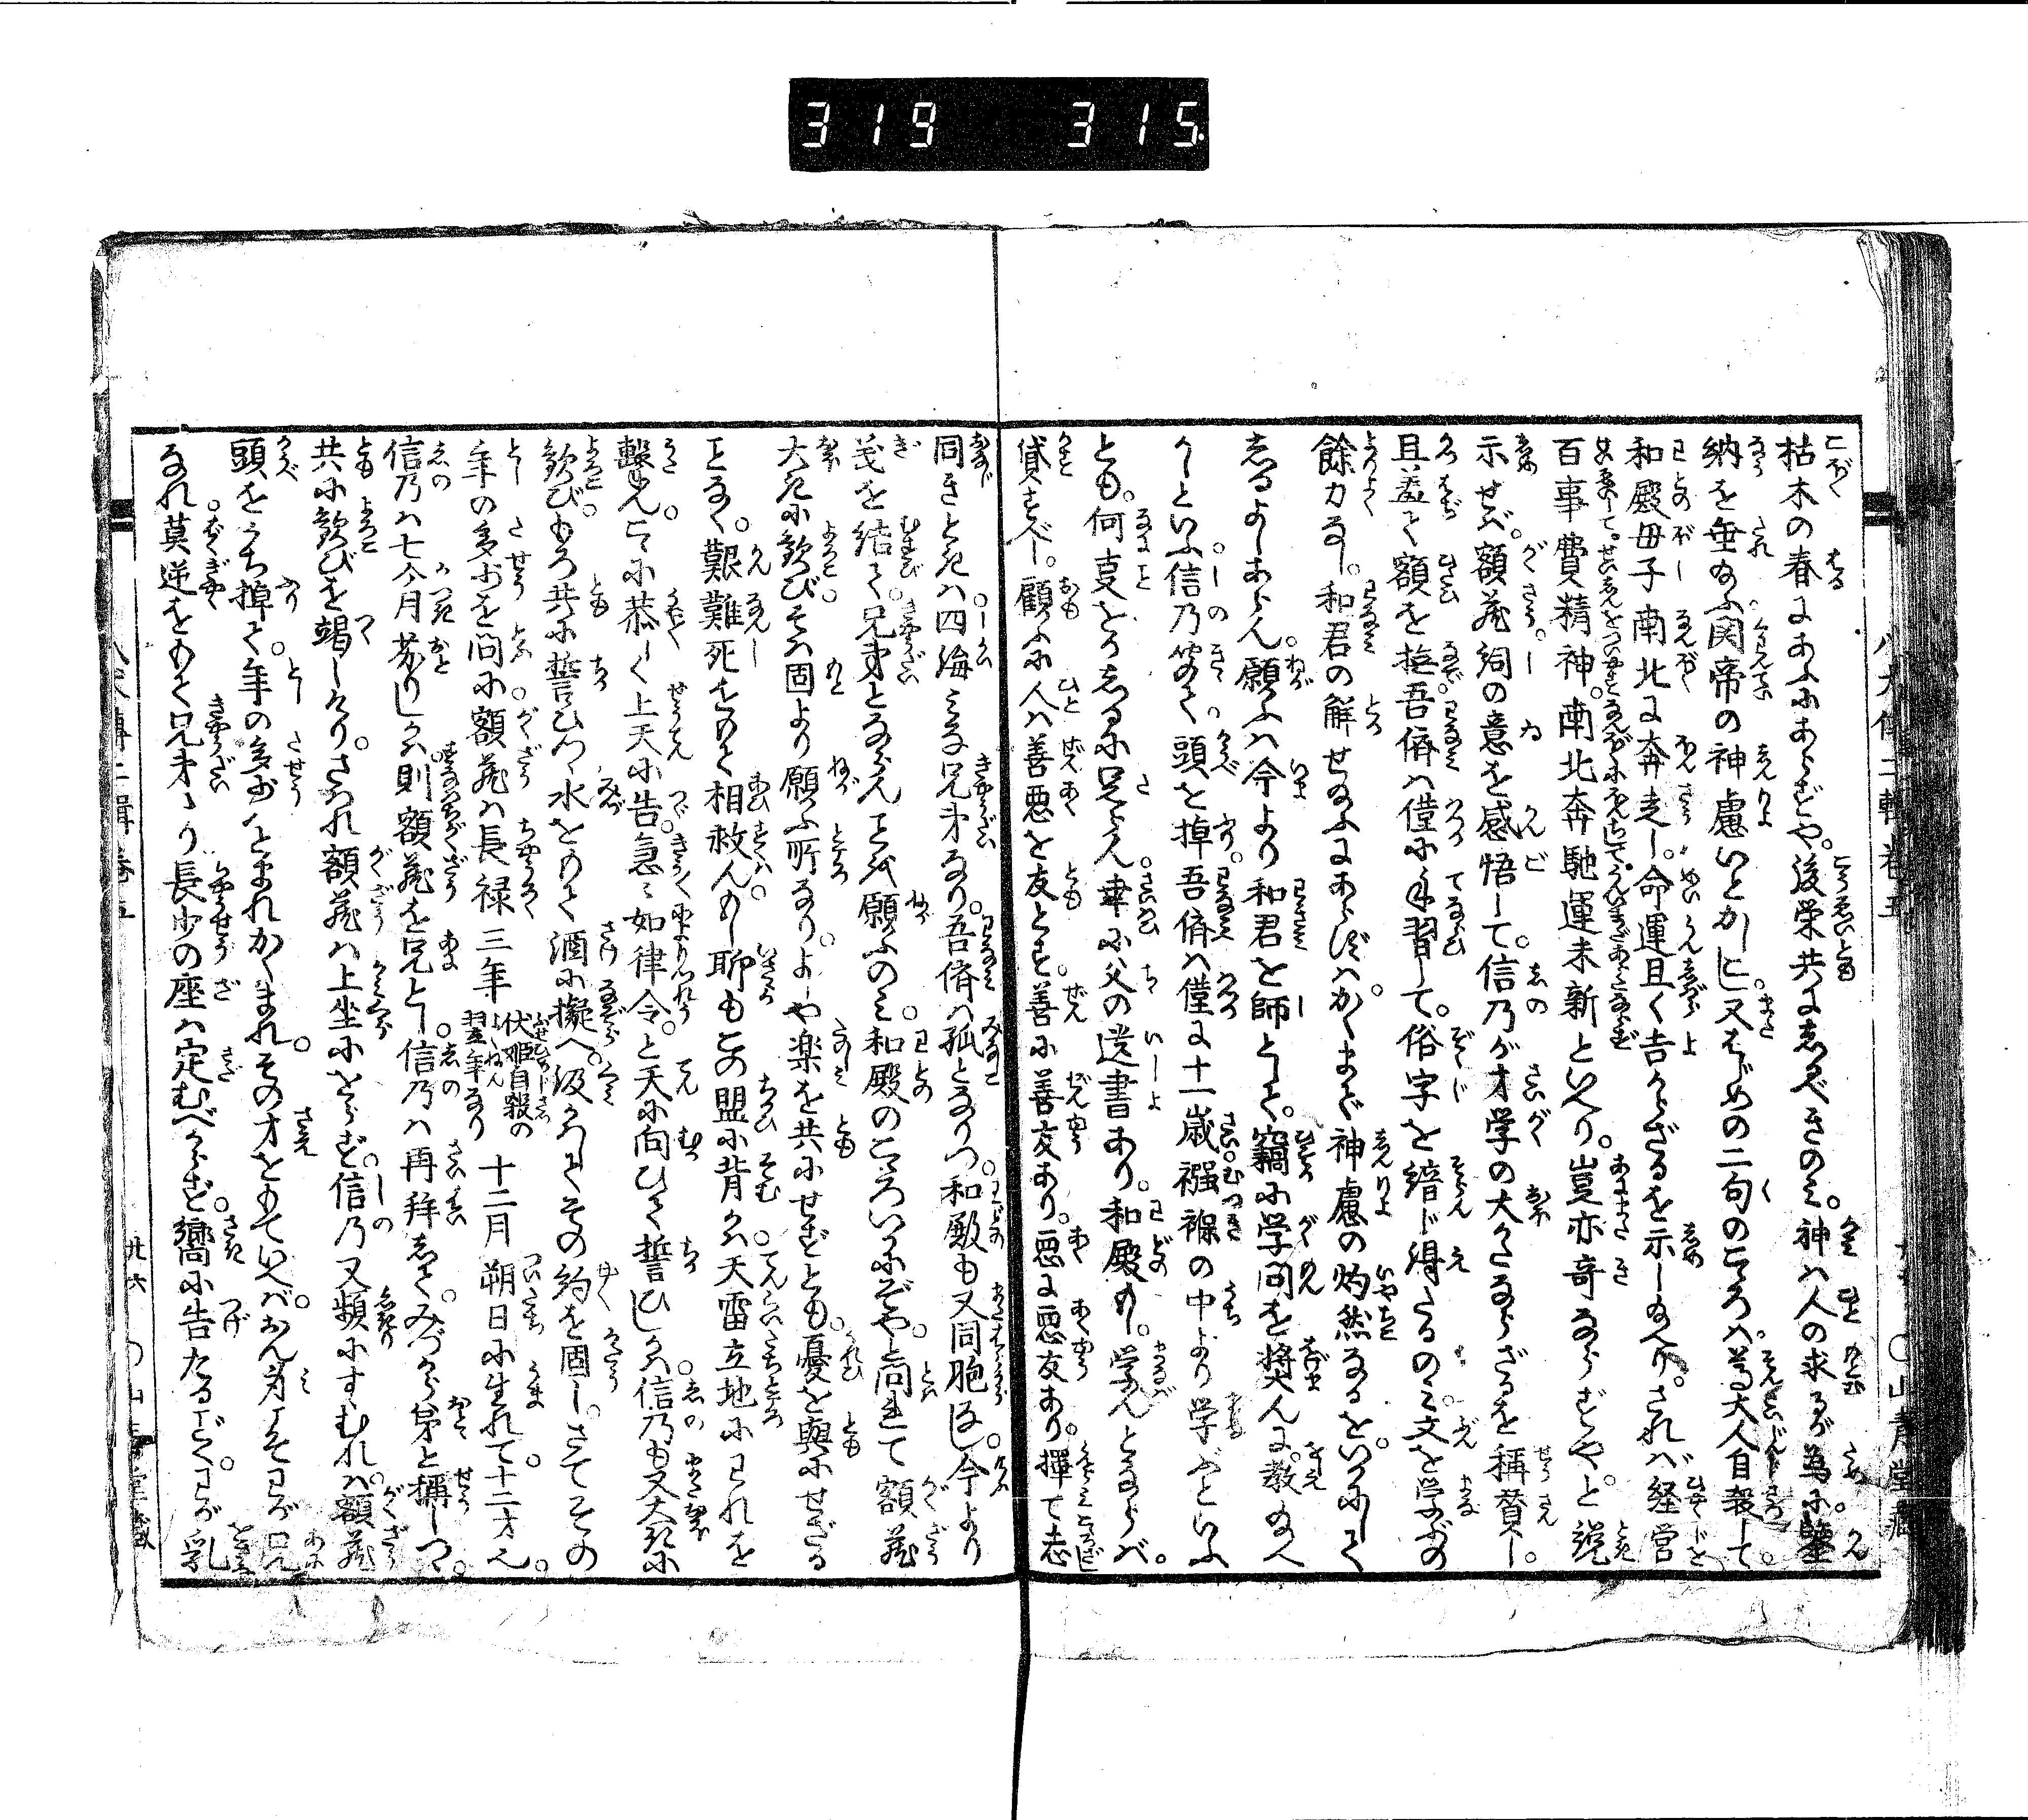 319 315
枯木の春にあふにあらずや。後栄共にしるべきのみ。神は人の求るが為に。鑒
納を垂給ふ関帝の神慮いとかしこし。又はじめの二句のこころは。尊大人自殺して。
和殿母子南北に奔走し。命運且く吉からざるを示し給へり。されば経営
百事費精神。南北奔馳運未新といへり。豈亦奇ならずや。と説
示せば。額蔵詞の意を感悟して。信乃が才学の大かたならざるを称賛し。
且羞て額を撫吾儕は僅に手習して。俗字を諳じ得たるのみ。文を学ぶの
餘力なし。和君の解せ給ふにあらずは。かくまで神慮の灼然なるを。いかにして
しるよしあらん。願ふは今より和君を師として。竊に学問を奨んに。教給へ
かしといふ信乃答て。頭を掉吾儕は僅に十一歳襁褓の中より学ぶといふ
とも。何事をかしるに足らん。幸に父の遺書あり。和殿もし。学んとならば。
貸すべし。顧ふに人は善悪を友とす。善に善友あり。悪に悪友あり。擇て志
同きときは四海みな兄弟なり。吾儕は孤となりつ。和殿も又同胞なし。今より
義を結て。兄弟とならんことを願ふのみ。和殿のこころいかにぞや。と問れて額蔵
大きに歓び。そは固より願ふ所なり。よしや楽を共にせずとも。憂を與にせざる
ことなく。艱難死をもて相救ん。もし聊もこの盟に背かば天雷立地にわれを
撃ん。ここに恭しく上天に告。急々如律令。と天に向ひて誓ひしかば。信乃も又大きに
歓び。もろ共に誓ひつつ水をもて酒に擬へ。汲かはしてその約を固し。さてその
年の多少を問に額蔵は長禄三年伏姫自殺の翌年なり十二月朔日に生れて。十二才也。
信乃は七个月劣りしかば。則額蔵を兄とし。信乃は再拝して。みづから弟と稱しつつ。
共に歓びを竭しけり。されば額蔵は上坐にをらず。信乃又頻にすすむれば。額蔵
頭をうち掉て。年の多少はとまれかくまれ。その才をもていへば。おん身こそわが兄
なれ。莫逆をもて兄弟たり長少の座は定むべからず。嚮に告たるごとく。わが乳
八犬傳二輯巻五
廿六
山青堂蔵